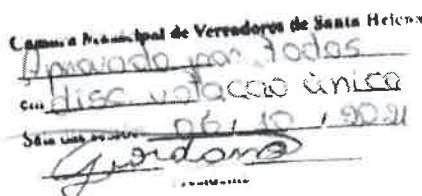 Camara Municipal de Vereadores de Santa Helena
Aprovado por todos
em disc votação única
Sala das sessões 06, 10, 2021